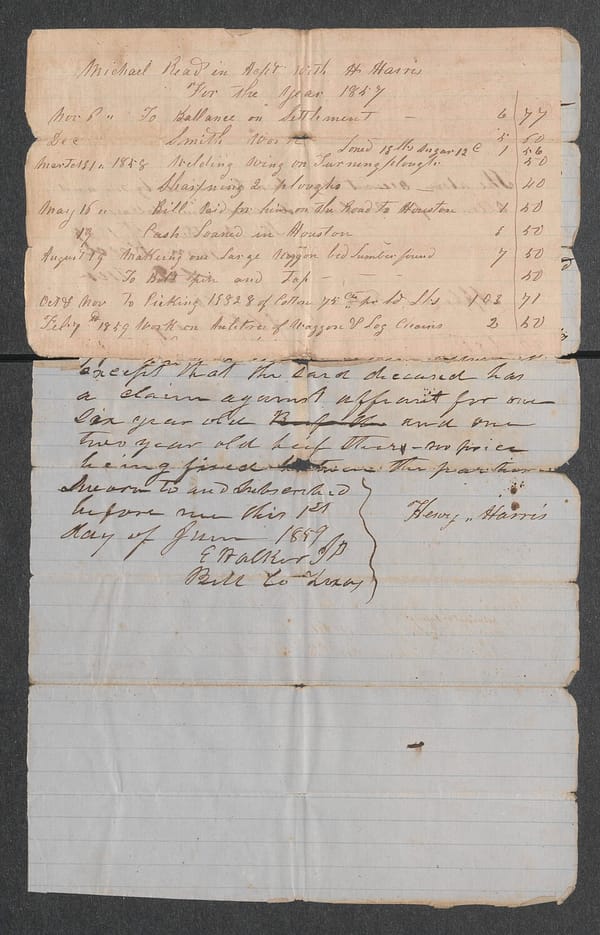 Michael Read in Acpt with H Harris
For the Year 1857
Nov 8 " To Ballance on Settlement - 6 77
Dec Smith Work 5 50
Loned 13 lbs Sugar 12 c 1 56
1858 Welding wing on Turning plough 50
Sharpning 2 ploughs 40
May 16 " Bill Paid for him on the Road to Houston 1 50
19 Cash Loaned in Houston 5 50
August 19 Makering one Large Waggon bed Lumber found 7 50
To Bolt Spin and Tap - - - 50
Oct & Nov To Picking 13828 of Cotton 75 cts pr hd Lbs 103 71
Feby 1859 Work on of Waggon & Log Chains 2 50
Except that the Said deceased has
a claim against affiant for one
Six year old and one
two year old beef Steers - no price
being fixed between the parties
Sworn to and Subscribed
before me this 1st
day of June 1859
E Walker JP
Bell Co Texas
Henry Harris